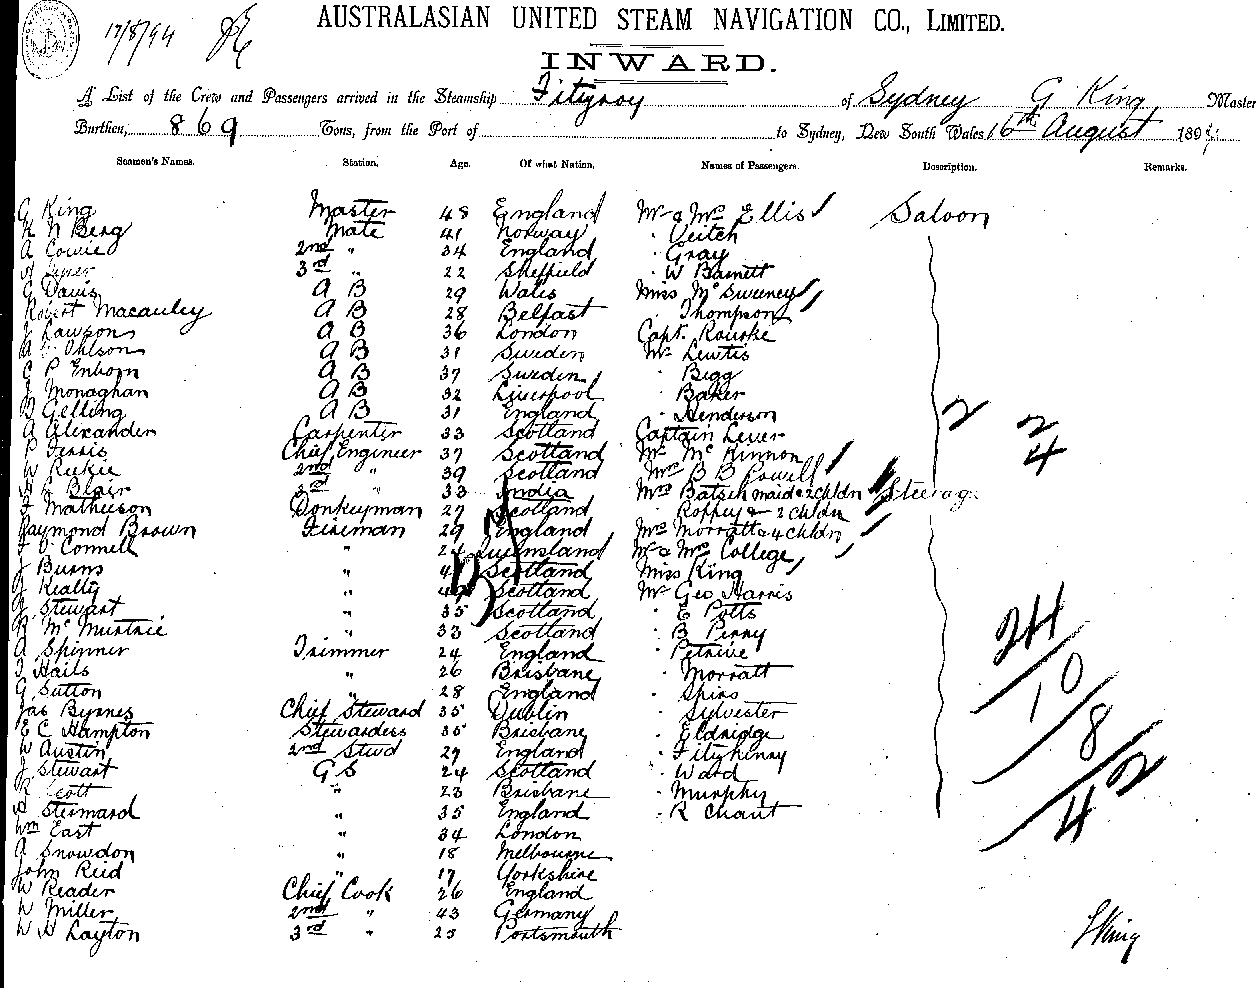 17/8/94
AUSTRALASIAN UNITED STEAM NAVIGATION CO., LIMITED.
INWARD.
A List of the Crew and Passengers arrived in the Steamship Fitzroy of Sydney G King, Master
Burthen, 869 Tons, from the Port of to Sydney, New South Wales 16th August 1894
Seamen's Names. Station. Age. Of what Nation. Names of Passengers. Description. Remarks.
G King Master 48 England Mr & Mrs Ellis Saloon
N Berg Mate 41 Norway " Veitch
A Cowie 2nd " 34 England " Gray
3rd " 22 Sheffield " W Barnett
G Davis A B 29 Wales Miss McSweeney
Robert Macauley A B 28 Belfast " Thompson
J Lawson A B 36 London Capt. Rourke
Ohlson A B 31 Sweden Mr Lewtis
C P Enbom A B 37 Sweden " Bigg
J Monaghan A B 32 Liverpool " Baker
D Gelling A B 31 England " Henderson 2 2
A Alexander Carpenter 33 Scotland Captain Lever 4
P Ferris Chief Engineer 37 Scotland Mr McKinnon
W Reekie 2nd " 39 Scotland Mrs B B Powell
Blair 3rd " 33 India Mrs Batsch maid & 2 chldn Steerage
F Mathieson Donkeyman 27 Scotland " Roffey & 2 chldn
Raymond Brown Fireman 29 England Mrs Morratt & 4 chldn
J O'Connell " 24 Queensland Mr & Mrs College
J Burns " Scotland Miss King
J Kealty " Scotland Mr Geo Harris
J Stewart " 35 Scotland " E Potts
R McMurtrie " 33 Scotland " B Perry 24
A Spinner Trimmer 24 England " Petrive
J Hails " 26 Brisbane " Morratt 10
G Sutton " 28 England " Spiro
Jas Byrnes Chief Steward 35 Dublin " Sylvester
E C Hampton Stewardess 35 Brisbane " Eldridge 8
W Austin 2nd Stwd 27 England " Fitzhenry
J Stewart G S 24 Scotland " Ward
R Scott " 23 Brisbane " Murphy
Stermard " 35 England " R Chant 42
Wm East " 34 London
A Snowdon " 18 Melbourne
John Reid " 17 Yorkshire
W Reader Chief Cook 26 England
W Miller 2nd " 43 Germany
W H Layton 3rd " 25 Portsmouth
G King